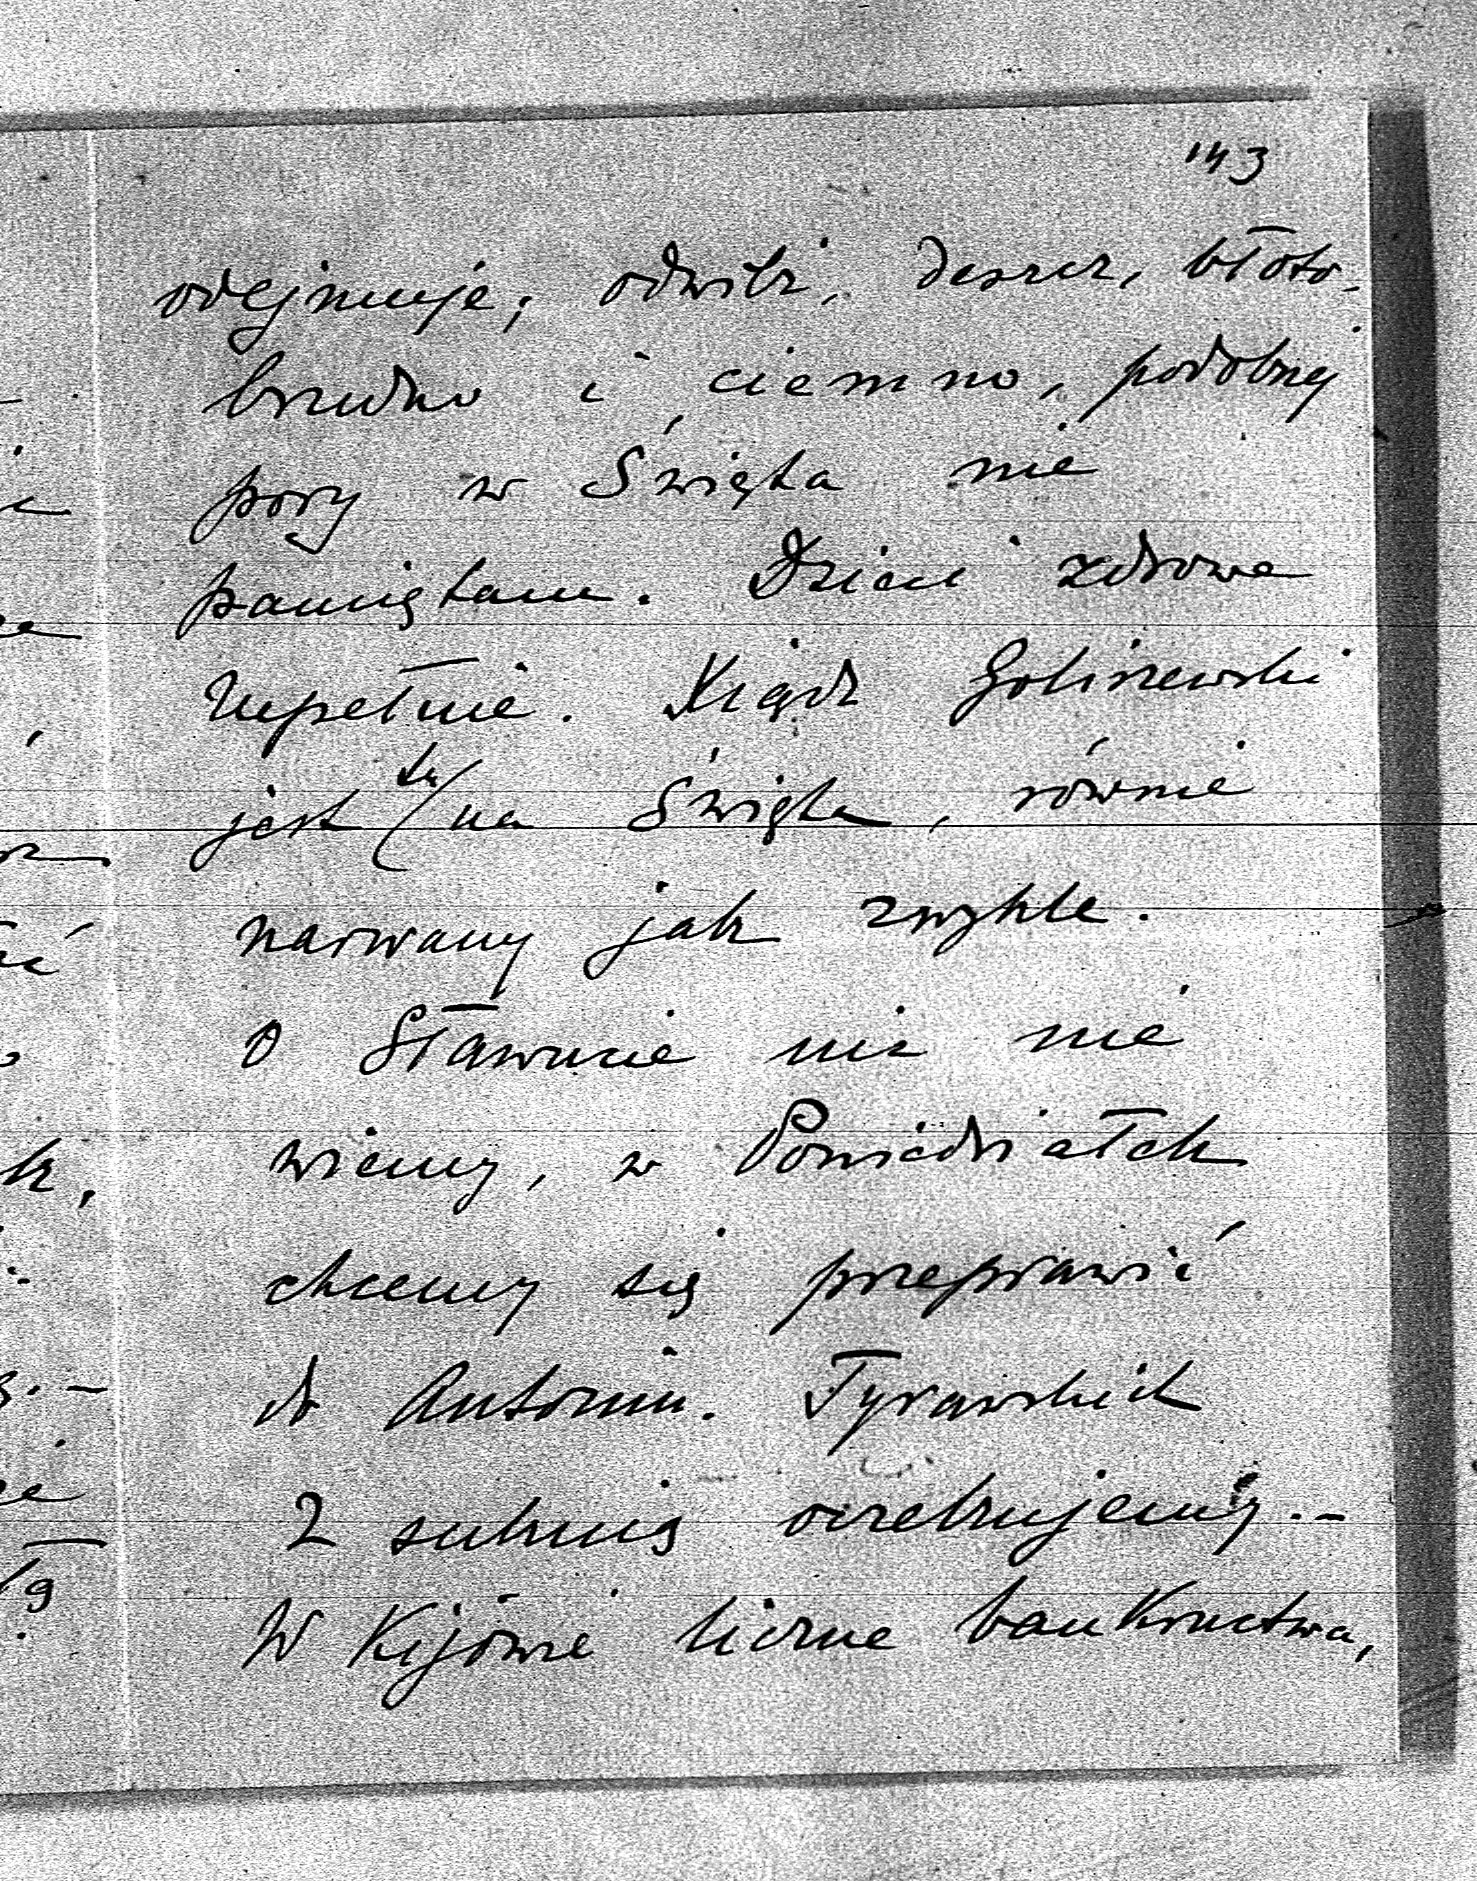 143
odejmuje; odwilż, deszcz, błoto,
brudno i ciemno, podobnej
pory w Święta nie
pamiętam. Dzieci zdrowe
zupełnie. Xiądz Goliszewski
jest tu na Święta, równie
narwany jak zwykle.
O Sławucie nic nie
wiemy, w Poniedziałek
chcemy się przeprawić
do Antonin. Tyrawskich
z suknią oczekujemy.-
W Kijowie liczne bankructwa,